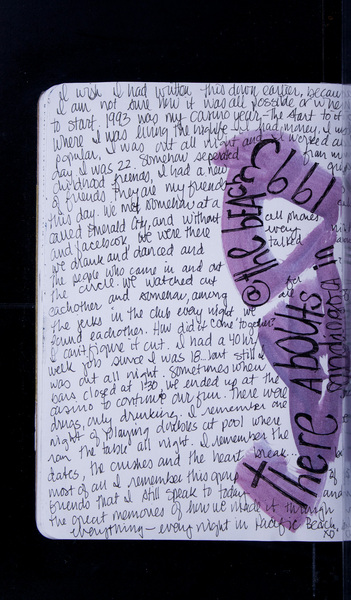 I wish I had written this down earlier, because
I am not sure how it was all possible or where
to start. 1993 was my casino year—The start to it
where I was living the nightlife. I had money, I was
popular, I was out all night and I worked all
day. I was 22. Somehow separated from my
childhood friends, I had a new
of friends. They are my friends
this day. We met somehow at a
called Emerald City, and without cell phones
and facebook we were there every
we drank and danced and talked
the people who came in and out
the circle. We watched out for
eachother and somehow, among all
the jerks in the club every night we
found eachother. How did it come together?
I can't figure it out. I had a 40 hr
week job since I was 18... but still I
was out all night. Sometimes when
bars closed at 1:30 we ended up at the
casino to continue our fun. There were
drugs, only drinking. I remember one
night of playing doubles at pool where
ran the table all night. I remember the
dates, the crushes and the heart break...
most of all I remember this group of
friends that I still speak to today and
the great memories of how we made it through
everything—every night in Pacific Beach.
xo
There Abouts
@the beach
1993